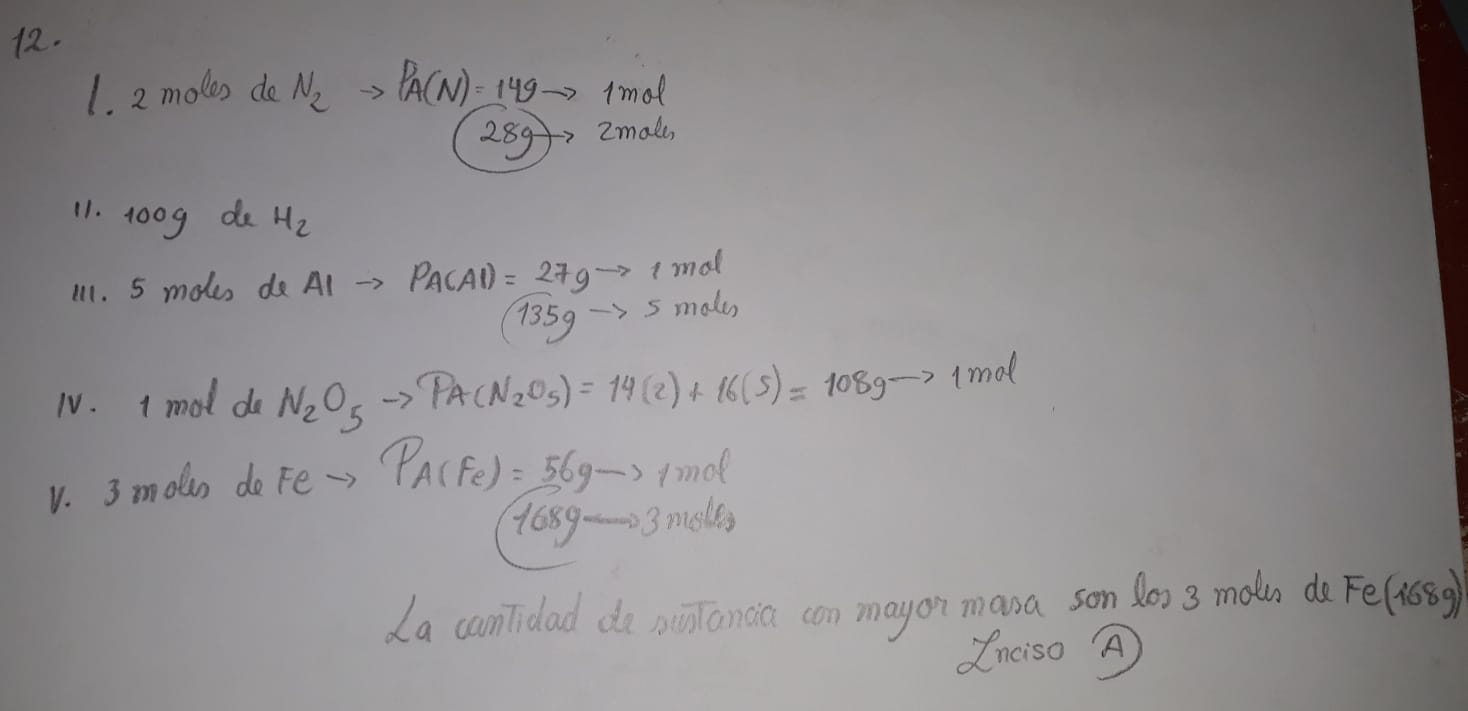 12.
I. 2 moles de N₂ → PA(N) = 14g → 1 mol
28g → 2 moles
II. 100g de H₂
III. 5 moles de Al → PA(Al) = 27g → 1 mol
135g → 5 moles
IV. 1 mol de N₂O₅ → PA(N₂O₅) = 14(2) + 16(5) = 108g → 1 mol
V. 3 moles de Fe → PA(Fe) = 56g → 1 mol
168g → 3 moles
La cantidad de sustancia con mayor masa son los 3 moles de Fe (168g)
Inciso A